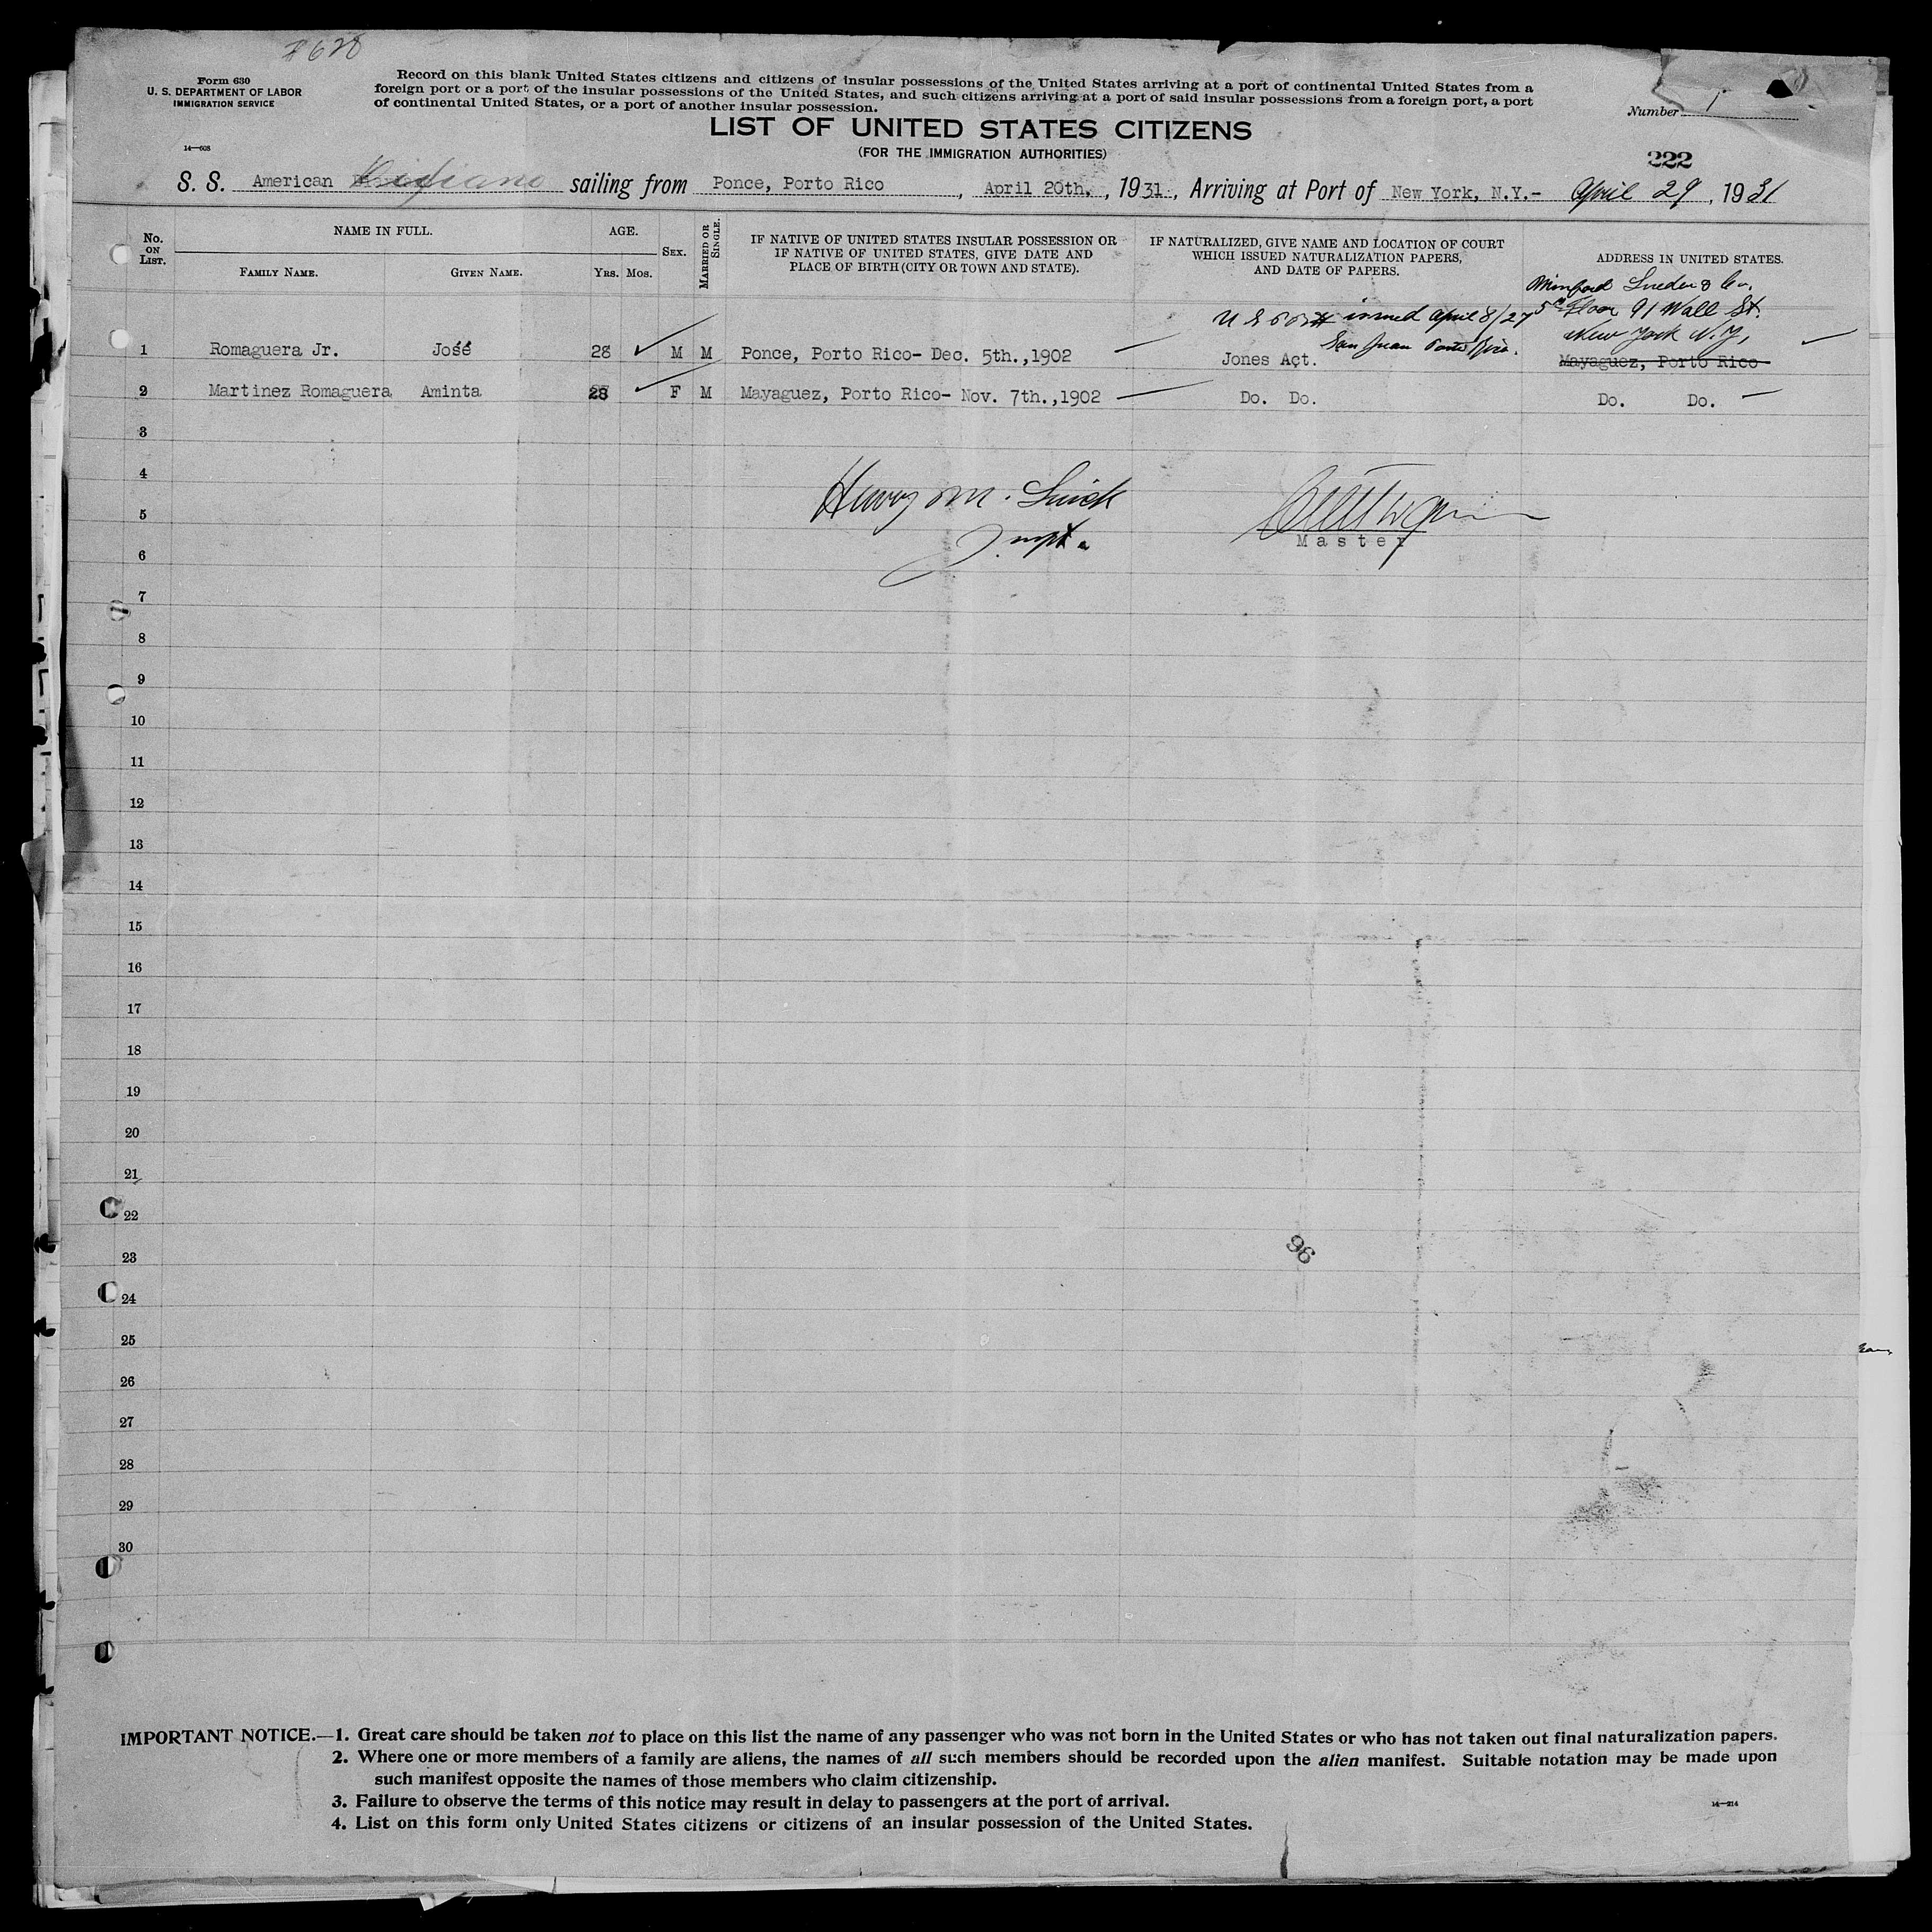 #628
Form 630
U. S. DEPARTMENT OF LABOR
IMMIGRATION SERVICE
14—608
Record on this blank United States citizens and citizens of insular possessions of the United States arriving at a port of continental United States from a
foreign port or a port of the insular possessions of the United States, and such citizens arriving at a port of said insular possessions from a foreign port, a port
of continental United States, or a port of another insular possession.
Number 1
LIST OF UNITED STATES CITIZENS
(FOR THE IMMIGRATION AUTHORITIES)
222
S. S. American sailing from Ponce, Porto Rico, April 20th, 1931, Arriving at Port of New York, N.Y.- April 29, 1931
No. ON LIST. NAME IN FULL. FAMILY NAME. GIVEN NAME. AGE. YRS. MOS. SEX. MARRIED OR SINGLE.
IF NATIVE OF UNITED STATES INSULAR POSSESSION OR
IF NATIVE OF UNITED STATES, GIVE DATE AND
PLACE OF BIRTH (CITY OR TOWN AND STATE).
IF NATURALIZED, GIVE NAME AND LOCATION OF COURT
WHICH ISSUED NATURALIZATION PAPERS,
AND DATE OF PAPERS.
ADDRESS IN UNITED STATES.
Minford Lueder & Co.
5th Floor 91 Wall St.
New York N.Y,
issued April 8/27
San Juan Porto Rico.
1 Romaguera Jr. José 28 M M Ponce, Porto Rico- Dec. 5th.,1902 Jones Act. Mayaguez, Porto Rico
2 Martinez Romaguera Aminta 28 F M Mayaguez, Porto Rico- Nov. 7th.,1902 Do. Do. Do. Do.
3
4
Henry M.
5
Master
6
7
8
9
10
11
12
13
14
15
16
17
18
19
20
21
22
23
96
24
25
26
27
28
29
30
IMPORTANT NOTICE.—1. Great care should be taken not to place on this list the name of any passenger who was not born in the United States or who has not taken out final naturalization papers.
2. Where one or more members of a family are aliens, the names of all such members should be recorded upon the alien manifest. Suitable notation may be made upon
such manifest opposite the names of those members who claim citizenship.
3. Failure to observe the terms of this notice may result in delay to passengers at the port of arrival.
14—214
4. List on this form only United States citizens or citizens of an insular possession of the United States.